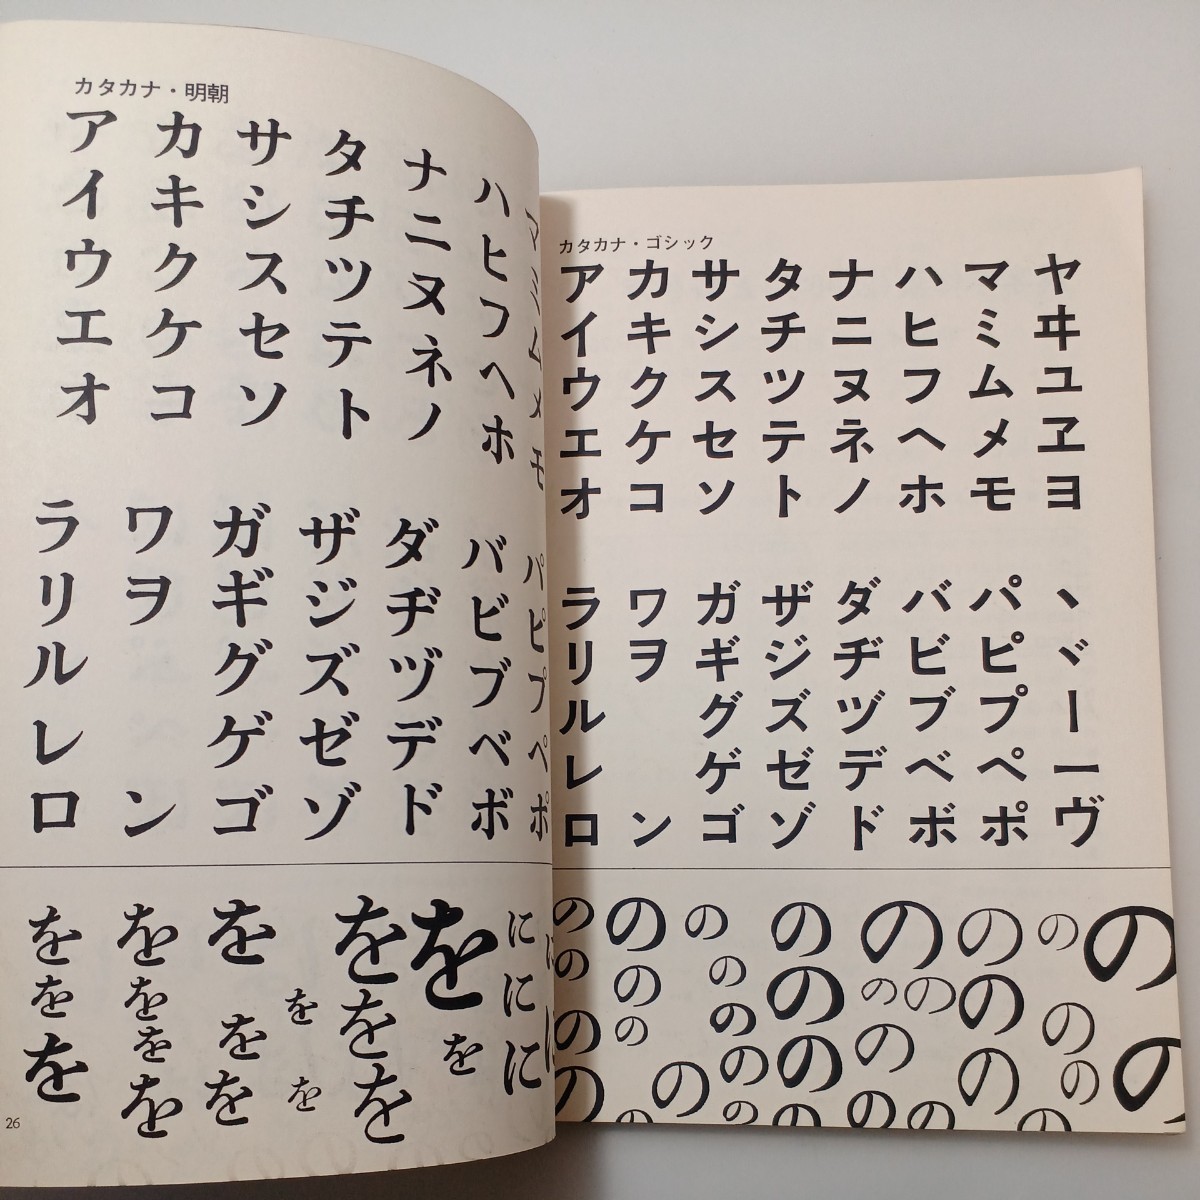 カタカナ・明朝
アイウエオ
カキクケコ
サシスセソ
タチツテト
ナニヌネノ
ハヒフヘホ
マミムメモ
ラリルレロ
ワヲン
ガギグゲゴ
ザジズゼゾ
ダヂヅデド
バビブベボ
パピプペポ
ををを
をををを
ををを
をを
ををを
をを
ににに
26
カタカナ・ゴシック
アイウエオ
カキクケコ
サシスセソ
タチツテト
ナニヌネノ
ハヒフヘホ
マミムメモ
ヤヰユヱヨ
ラリルレロ
ワヲン
ガギグゲゴ
ザジズゼゾ
ダヂヅデド
バビブベボ
パピプペポ
ヽヾ｜ーヴ
のののの
のののの
の
ののののの
のののの
のののののの
のののの
のののの
のの